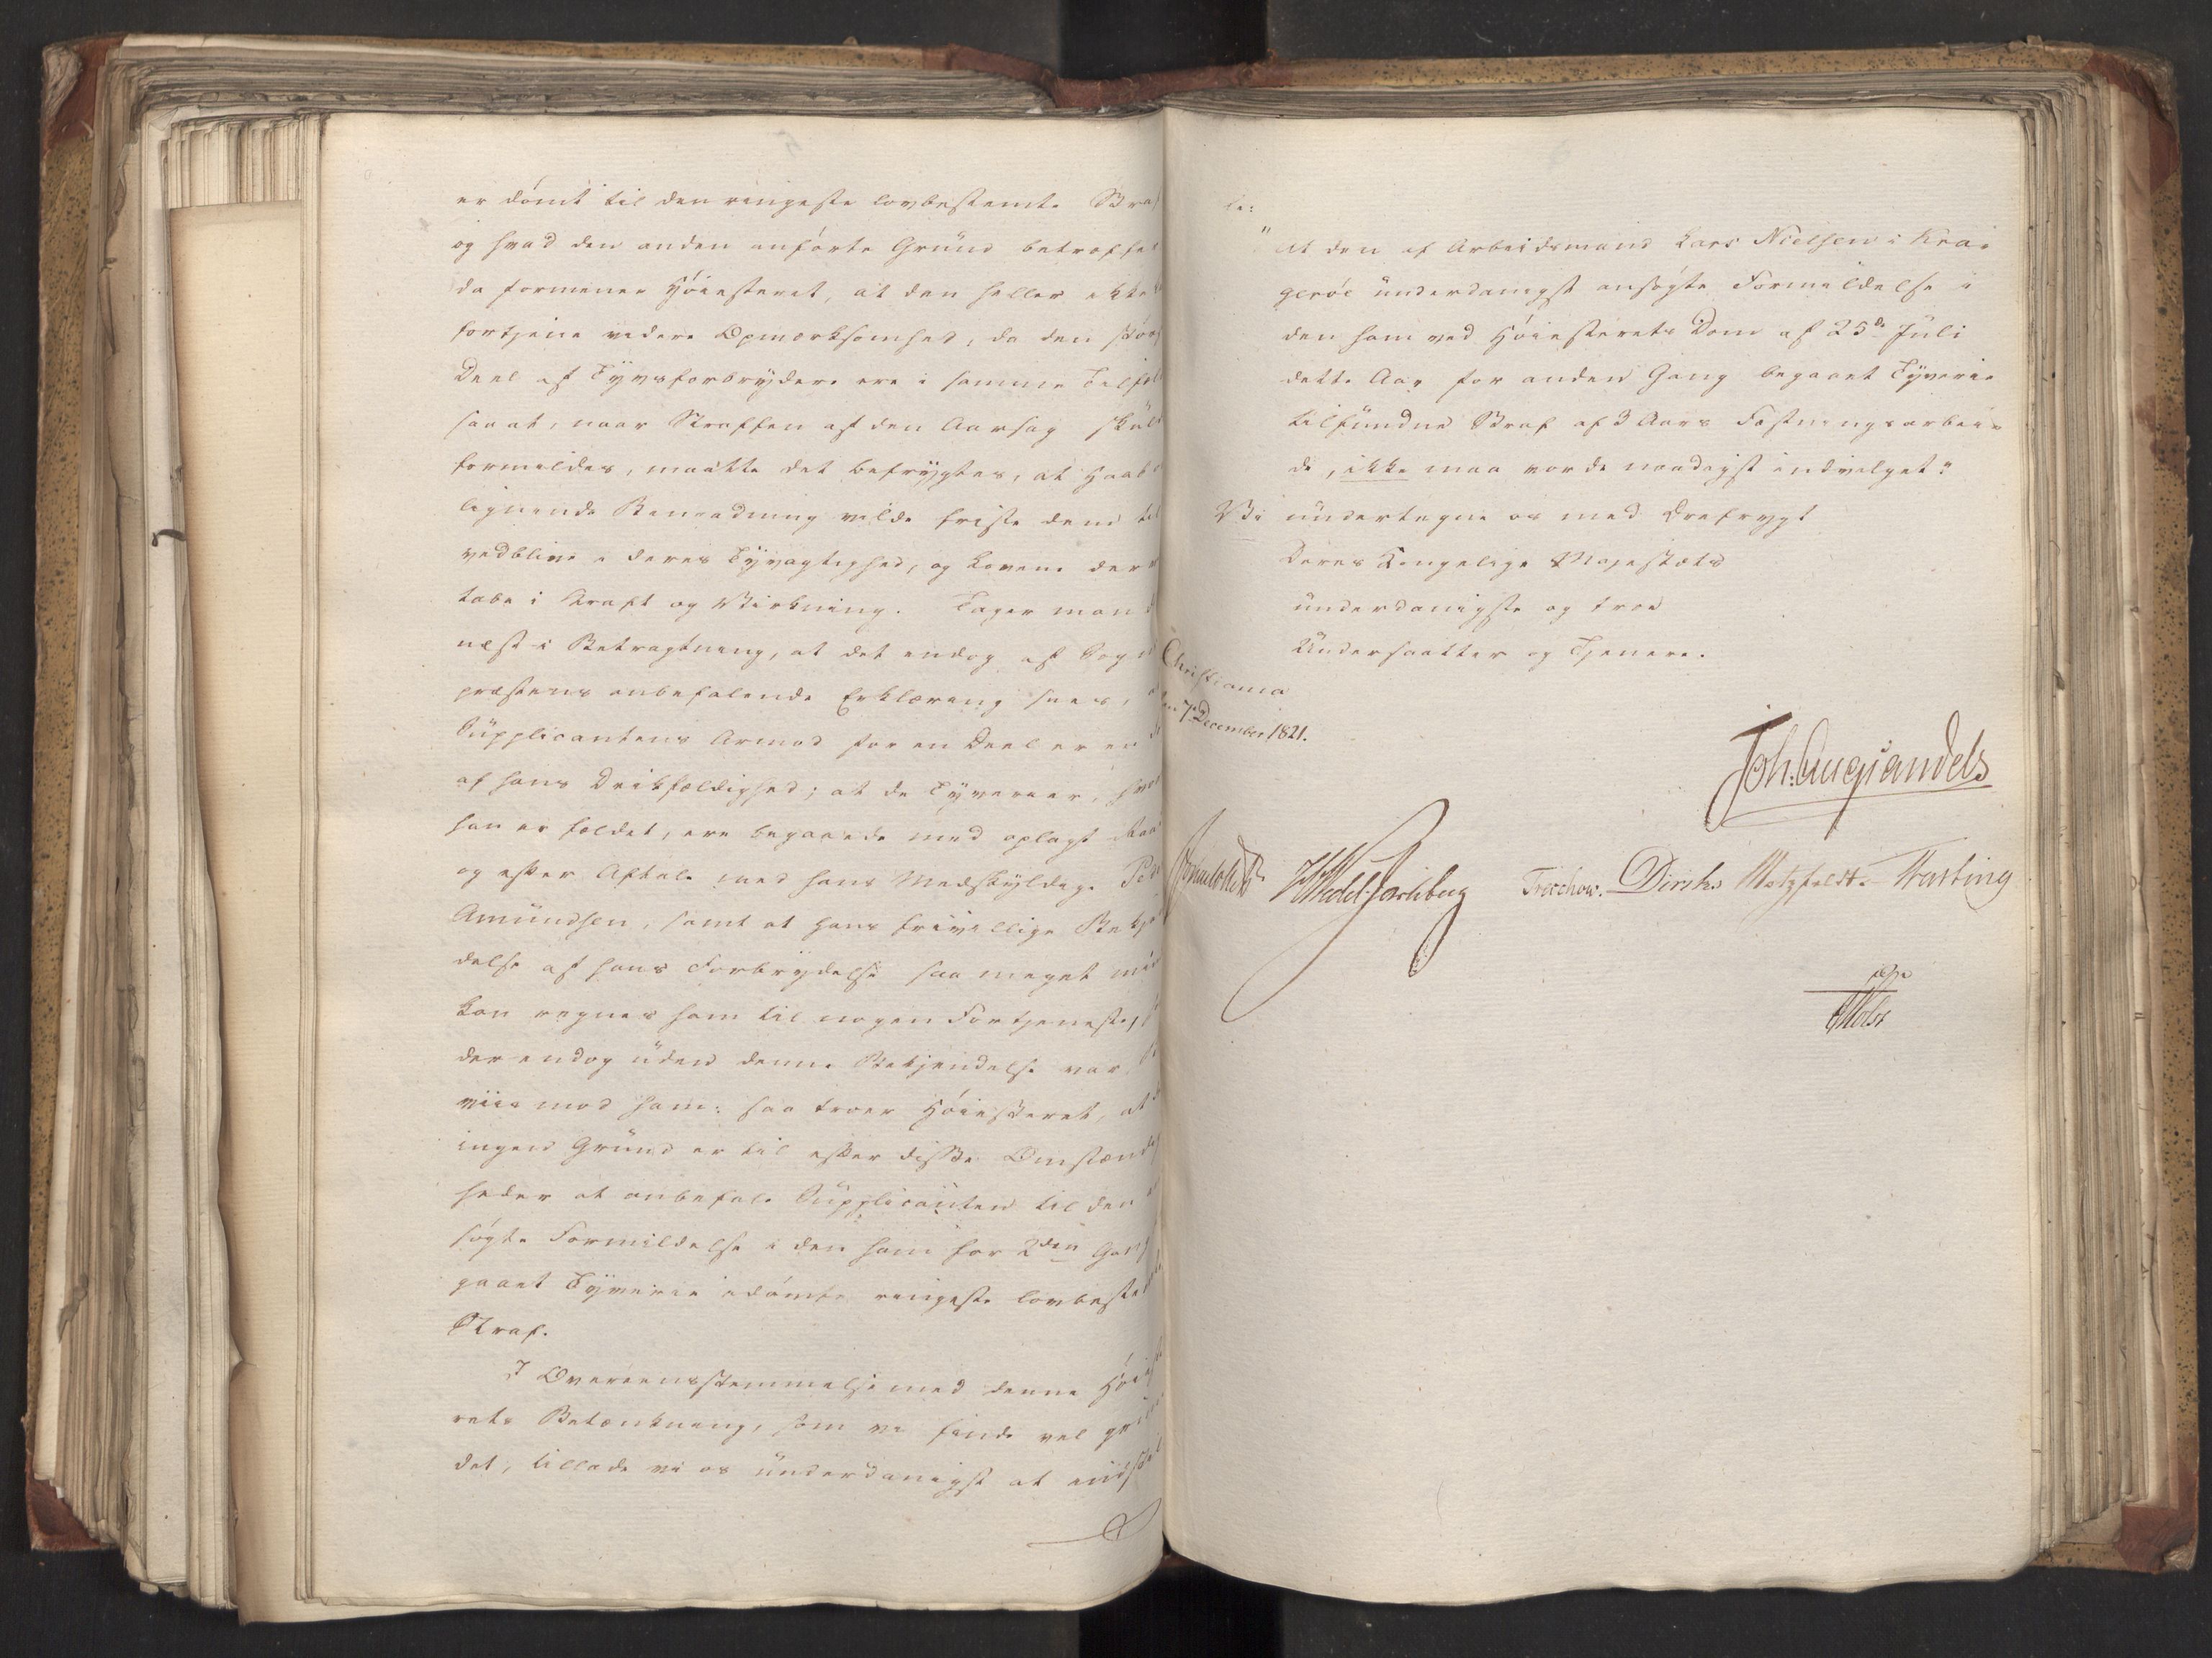 er dömt til den ringeste lovbestemte Straf
og hvad den anden anförte Grund betræffer
da formener Höiesteret, at den heller ikke
fortjene videre Opmærksomhed, da den stör
Deel af Tyvsforbrydere ere i samme Tilfæl
saa at, naar Straffen af den Aarsag skul
formildes, maatte det befrygtes, at Haab
lignende Benaadning vilde friste dem til
vedblive i deres Tyvagtighed, og Lovene der
tabe i Kraft og Virkning. Tager man
næst i Betragtning, at det endog af Sogn
præstens anbefalende Erklæring sees,
Supplicantens Armod for en Deel er en
af hans Drikfældighed; at de Tyverier, hvor
han er fældet, ere begaaede med oplagt Raad
og efter Aftale med hans Medskyldige Peder
Amundsen, samt at hans frivillige Bekjen
delse af hans Forbrydelse saa meget mindre
kan regnes ham til nogen Fortjeneste,
der endog uden denne Bekjendelse var
viis mod ham: saa troer Höiesteret, at
ingen Grund er til efter disse Omstændig
heder at anbefale Supplicanten til den
søgte Formildelse i den ham for 2den Gang
gaaet Tyverie idömte ringeste lovbestemte
Straf.
I Overeensstemmelse med denne Höieste
rets Betænkning, som vi finde vel grun
det, tillade vi os underdanigst at indstil
le:
"at den af Arbeidsmand Lars Nielsen i Kra-
geröe underdanigst ansögte Formildelse i
den ham ved Höiesterets Dom af 25de Juli
dette Aar for anden Gang begaaet Tyverie
tilfundne Straf af 3 Aars Fæstningsarbei-
de, ikke maa vorde naadigst indvilget."
Vi undertegne os med Ærefrygt
Deres Kongelige Majestæts
underdanigste og troe
Undersaatter og Tjenere.
Christiania
den 7de December 1821.
Joh: Aug: Sandels
Sommerhielm HWedel-Jarlsberg Treschow. Diriks Motzfeldt. Fasting